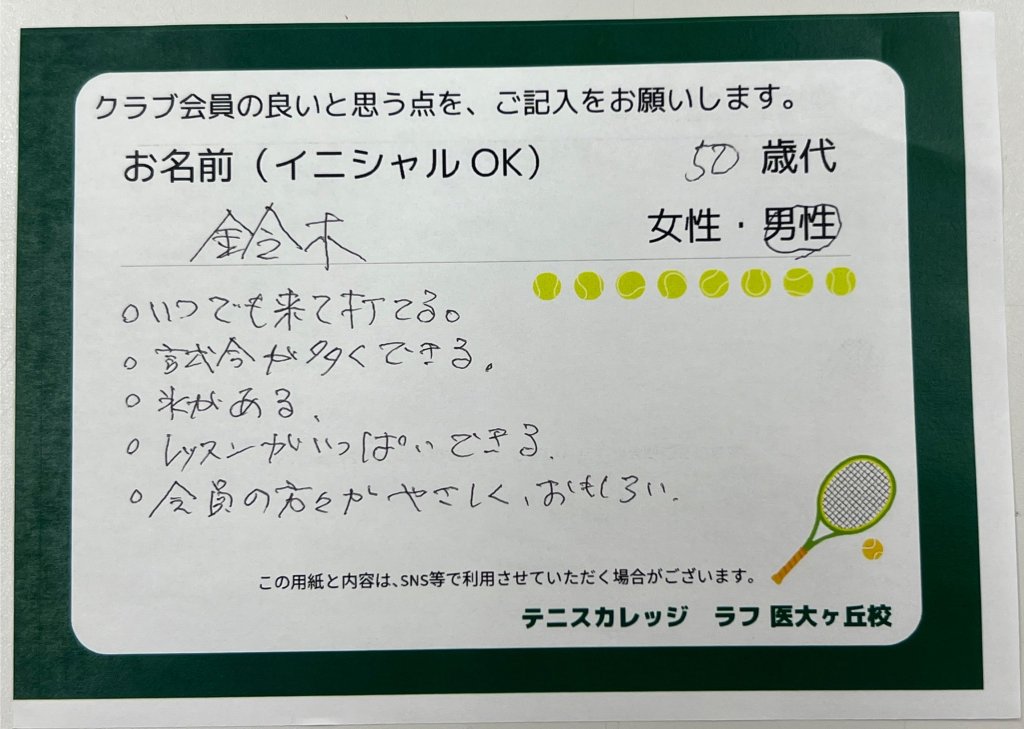 クラブ会員の良いと思う点を、ご記入をお願いします。
お名前（イニシャルOK） 50 歳代
鈴木 女性・男性
○いつでも来て打てる。
○試合が多くできる。
○氷がある、
○レッスンがいっぱいできる、
○会員の方々がやさしく、おもしろい、
この用紙と内容は、SNS等で利用させていただく場合がございます。
テニスカレッジ ラフ 医大ヶ丘校